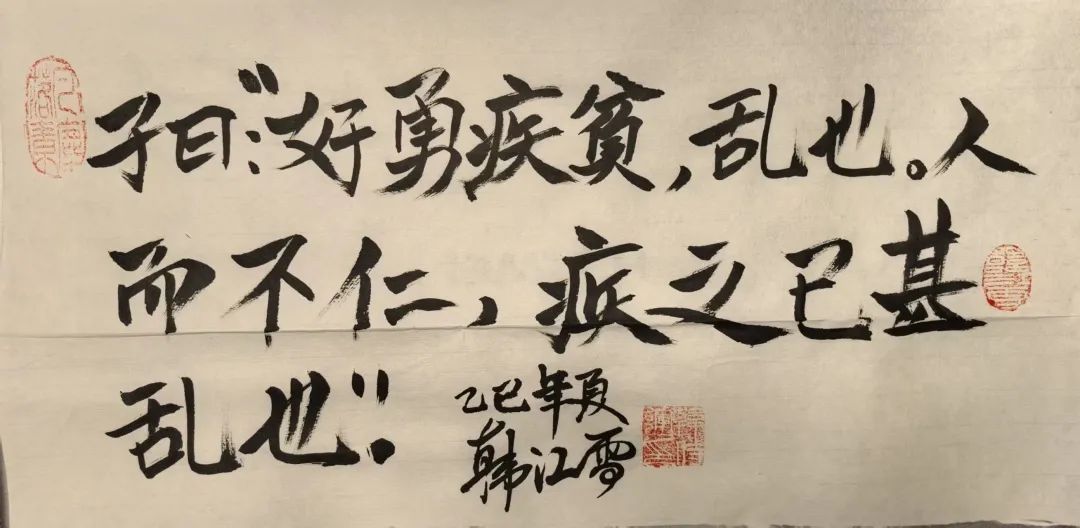 子曰:"好勇疾贫,乱也。人
而不仁,疾之已甚
乱也".
乙巳年夏
韩江雪